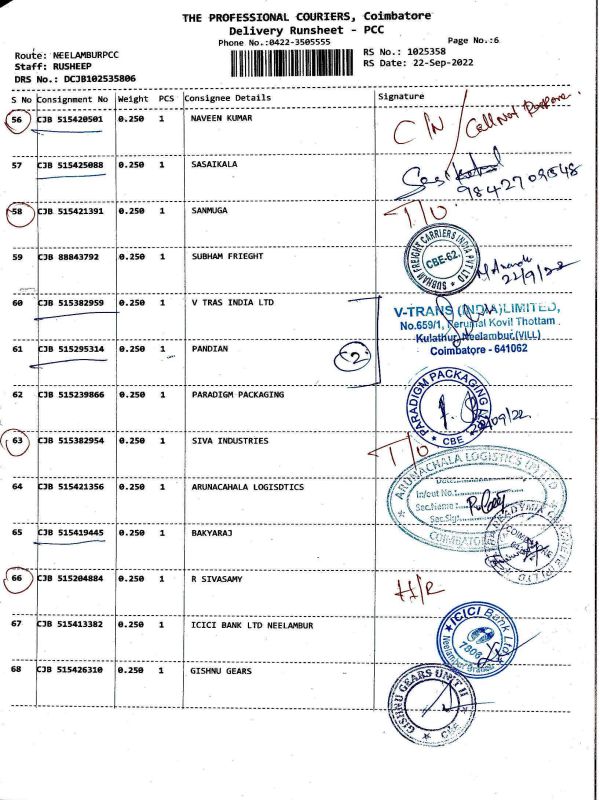 THE PROFESSIONAL COURIERS, Coimbatore
Delivery Runsheet - PCC
Phone No.:0422-3505555 Page No.:6
Route: NEELAMBURPCC RS No.: 1025358
Staff: RUSHEEP RS Date: 22-Sep-2022
DRS No.: DCJB102535806
S No Consignment No Weight PCS Consignee Details Signature
56 CJB 515420501 0.250 1 NAVEEN KUMAR C/N Call Not
57 CJB 515425088 0.250 1 SASAIKALA
9842709548
58 CJB 515421391 0.250 1 SANMUGA T/O
59 CJB 88843792 0.250 1 SUBHAM FRIEGHT SUBHAM FREIGHT CARRIERS INDIA PVT LTD CBE-62. 22/9/22
60 CJB 515382959 0.250 1 V TRAS INDIA LTD V-TRANS (INDIA) LIMITED,
No.659/1, Perumal Kovil Thottam
Kulathur, Neelambur.(VILL)
Coimbatore - 641062
61 CJB 515295314 0.250 1 PANDIAN 2
62 CJB 515239866 0.250 1 PARADIGM PACKAGING PARADIGM PACKAGING CBE
63 CJB 515382954 0.250 1 SIVA INDUSTRIES T/O
64 CJB 515421356 0.250 1 ARUNACAHALA LOGISDTICS ARUNACHALA LOGISTICS (P) LTD
Date:
In/out No.:
Sec.Name:
Sec.Sig:
COIMBATORE
65 CJB 515419445 0.250 1 BAKYARAJ
66 CJB 515204884 0.250 1 R SIVASAMY H/R
67 CJB 515413382 0.250 1 ICICI BANK LTD NEELAMBUR ICICI Bank Ltd 1808 Neelambur Branch
68 CJB 515426310 0.250 1 GISHNU GEARS GISHNU GEARS UNIT II CBE